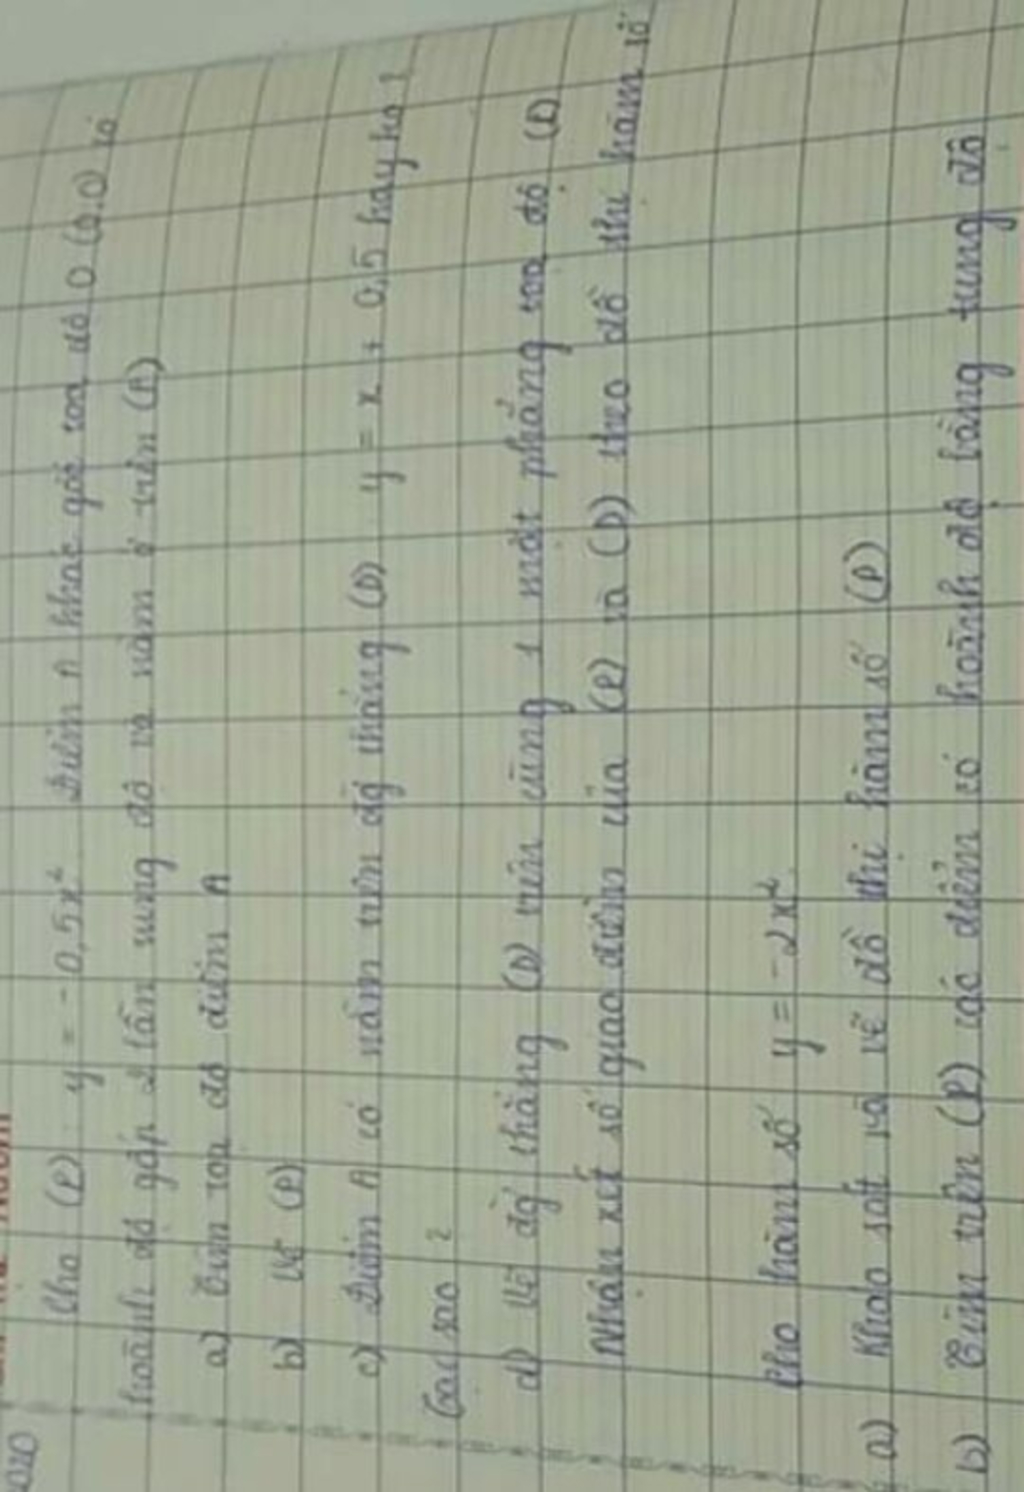 2020
Cho (P) y = -0,5x² Điểm A khác gốc toạ độ O (0.0) có
hoành độ gấp 2 lần tung độ và nằm ở trên (A)
a) Tìm toạ độ điểm A
b) Vẽ (P)
c) Điểm A có nằm trên đg thẳng (D) y = x + 0,5 hay ko ?
Tại sao ?
d) Vẽ đg thẳng (D) trên cùng 1 mặt phẳng toạ độ (D)
Nhận xét số giao điểm của (P) và (D) theo đồ thị hàm số
Cho hàm số y = -2x²
a) Khảo sát và vẽ đồ thị hàm số (P)
b) Tìm trên (P) các điểm có hoành độ bằng tung độ